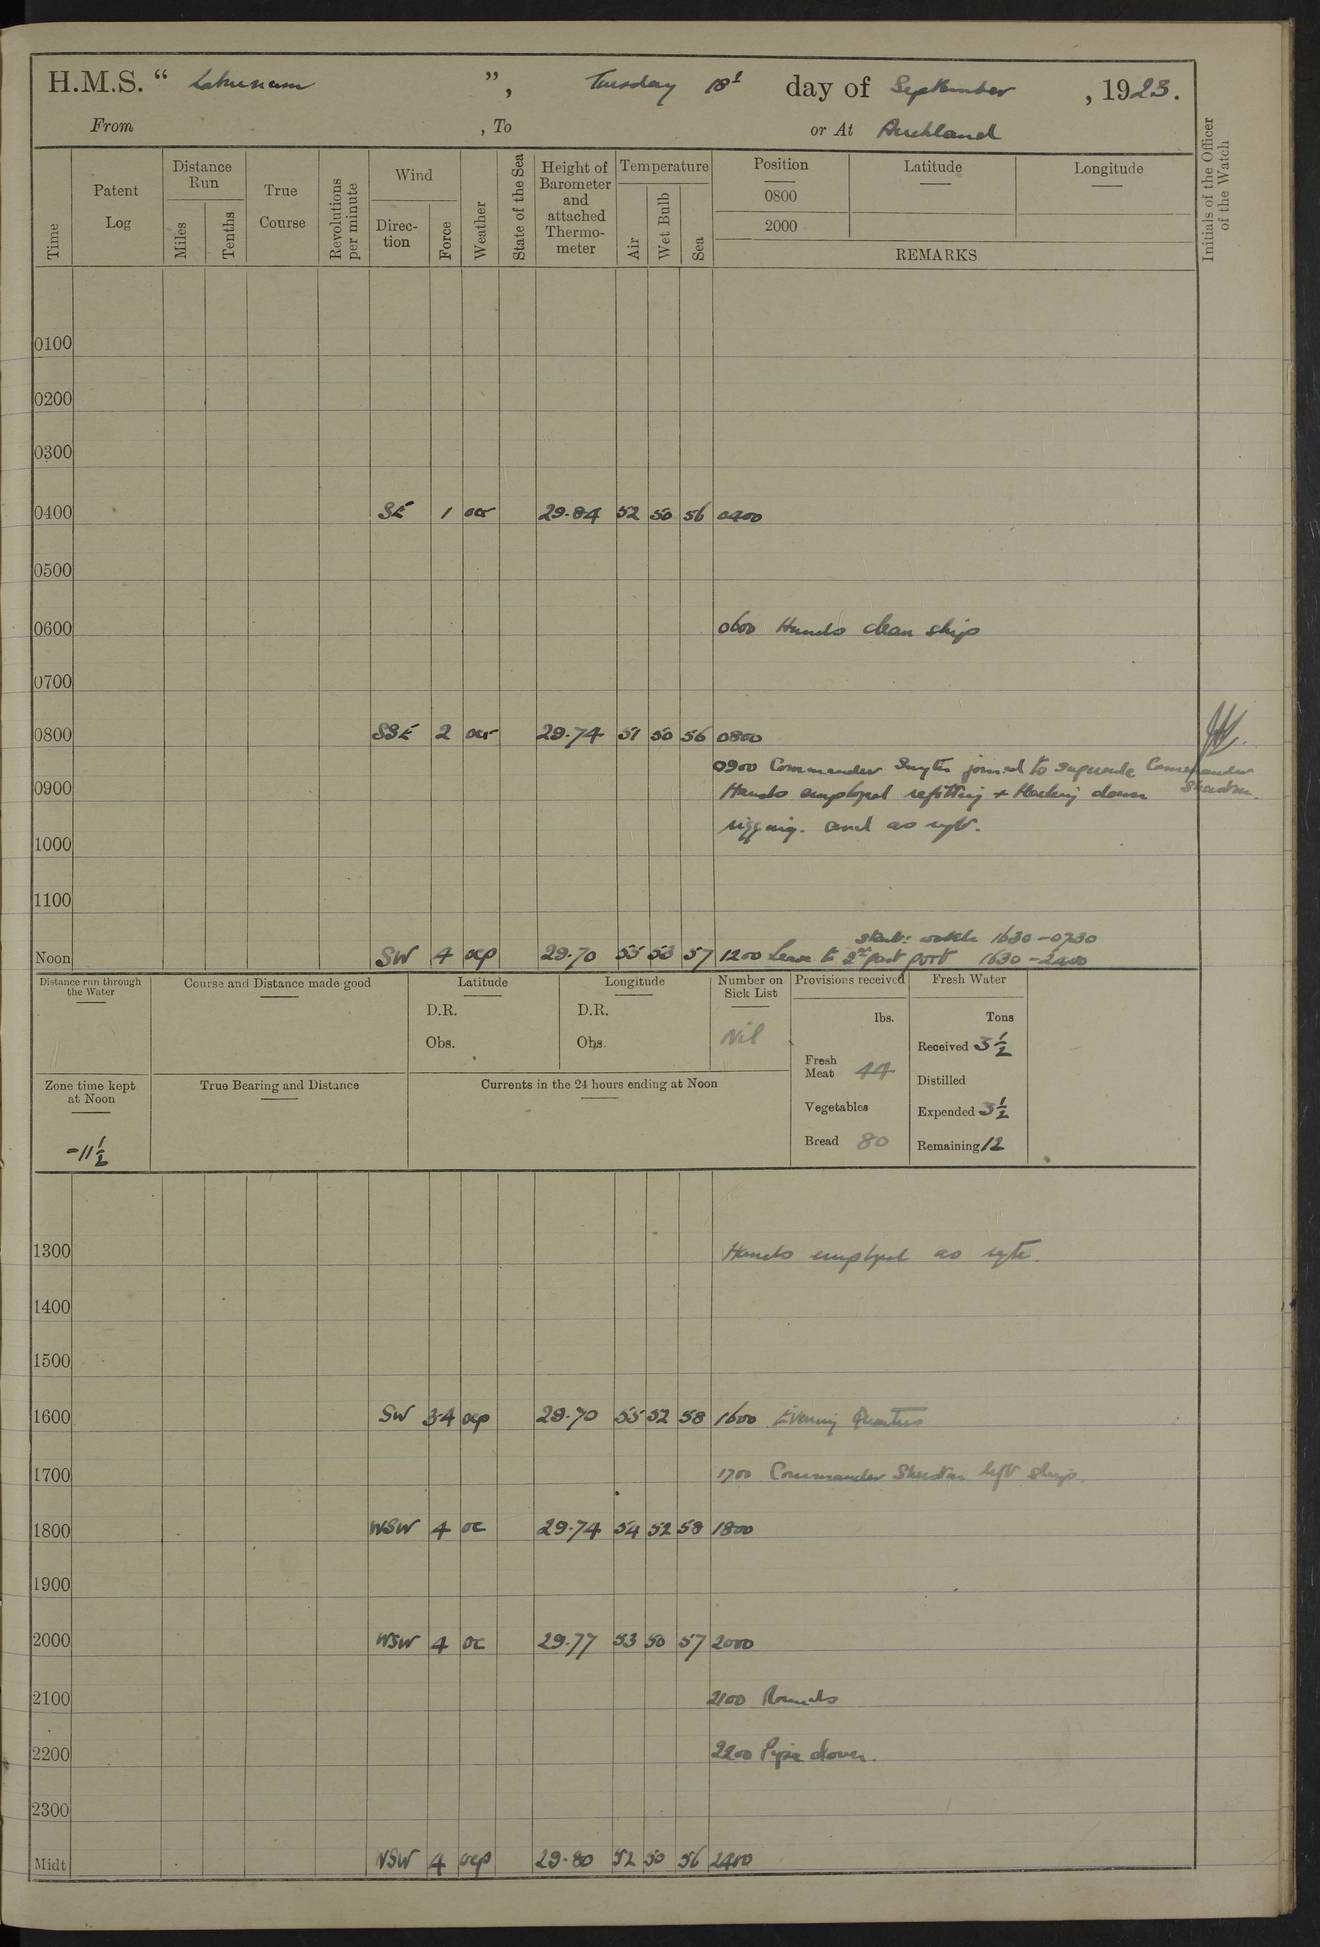 H.M.S. “ Laburnum ”, Tuesday 18th day of September, 1923.
From , To or At Auckland
Time
Patent Log
Distance Run
Miles
Tenths
True Course
Revolutions per minute
Wind
Direction
Force
Weather
State of the Sea
Height of Barometer and attached Thermometer
Temperature
Air
Wet Bulb
Sea
Position
Latitude
Longitude
0800
2000
REMARKS
Initials of the Officer of the Watch
0100
0200
0300
0400 SE 1 ocr 29.84 52 50 56 0400
0500
0600 0600 Hands clean ship
0700
0800 SSE 2 ocr 29.74 51 50 56 0800
0900 Commander Smyth joined to supersede Commander Sherston.
0900 Hands employed refitting & blacking down
rigging. and as reqte.
1000
1100
1630 – 0730
Noon SW 4 ocp 29.70 55 53 57 1200 Leave to 2nd part port 1630 – 2400
Distance run through the Water
Course and Distance made good
Latitude
D.R.
Obs.
Longitude
D.R.
Obs.
Number on Sick List
Nil
Provisions received
lbs.
Fresh Meat 44
Vegetables
Bread 80
Fresh Water
Tons
Received 3½
Distilled
Expended 3½
Remaining 12
Zone time kept at Noon
-11½
True Bearing and Distance
Currents in the 24 hours ending at Noon
1300 Hands employed as reqte.
1400
1500
1600 SW 3-4 ocp 29.70 55 52 58 1600 Evening Quarters
1700 1700 Commander Sherston left ship.
1800 WSW 4 oc 29.74 54 52 58 1800
1900
2000 WSW 4 oc 29.77 53 50 57 2000
2100 2100 Rounds
2200 2200 Pipe down.
2300
Midt WSW 4 ocp 29.80 52 50 56 2400